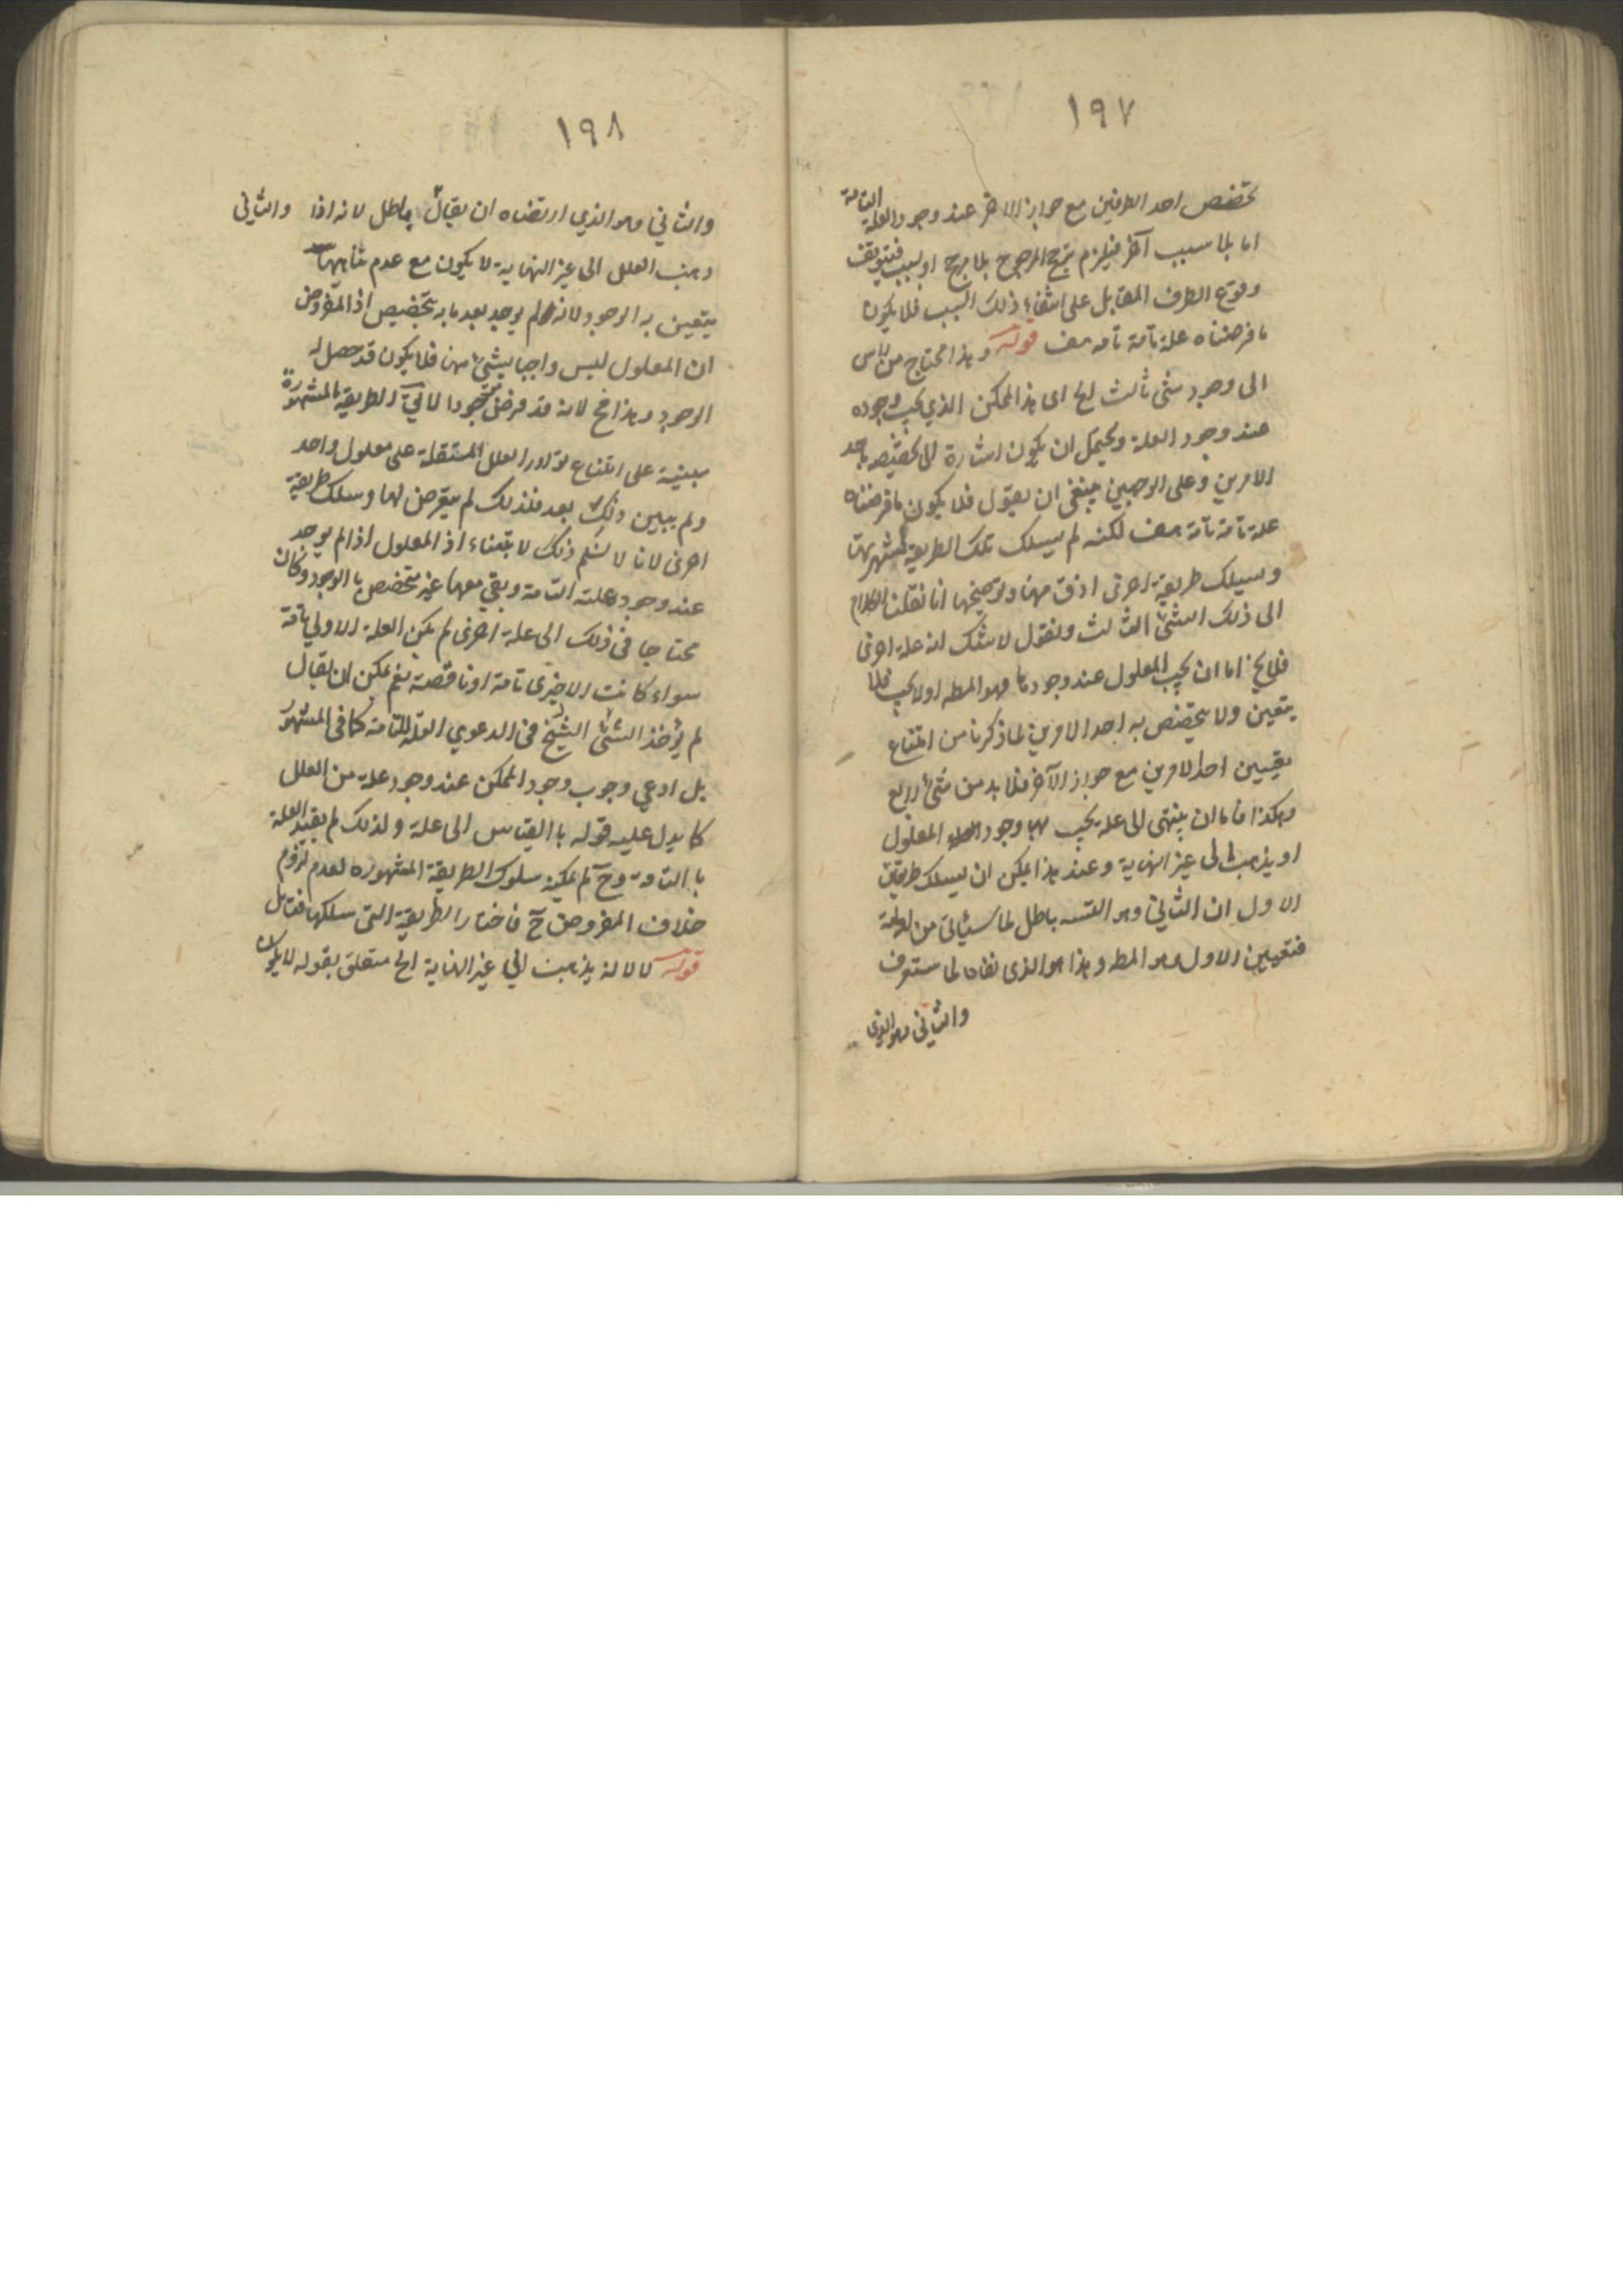 ١٩٧
تخصص احد الطرفين مع جواز الاخر عند وجود العلة التامة
اما بلا سبب آخر فيلزم ترجح المرجوح بلا مرجح او بسبب فيتوقف
وقوع الطرف المقابل على انتفاء ذلك السبب فلا يكون
ما فرضناه علة تامة تامه هف قوله وهذا محتاج من راس
الى وجود شئ ثالث الخ اى هذا الممكن الذي يجب وجوده
عند وجود العلة ويحتمل ان يكون اشارة الى تخصيصه باحد
الامرين وعلى الوجهين ينبغى ان يقول فلا يكون ما فرضناه
علة تامة تامة هف لكنه لم يسلك تلك الطريقة لشهرتها
وسلك طريقة اخرى ادق منها وتوضيحها انا نقلنا الكلام
الى ذلك الشئ الثالث ونقول لا شك انه علة اخرى
فلا يخ اما ان يجب المعلول عند وجودها وهو المطه اولا يجب فلا
يتعين ولا يتخصص به احد الامرين لما ذكرنا من امتناع
تعيين احد الامرين مع جواز الآخر فلا بد من شئ رابع
وهكذا فاما ان ينتهى الى علة يجب بها وجود المعلول
او يذهب الى غير النهاية وعند هذا يمكن ان يسلك طريقين
الاول ان الثاني وهو التسه باطل لما سيأتى من
فتعين الاول وهو المطه وهذا هو الذى نفاه لما ستعرف
والثانى وهو الذى
١٩٨
والثاني وهو الذي ارتضاه ان يقال باطل لانه اذا والثانى
ذهب العلل الى غير النهاية لا يكون مع عدم تناهيها
يتعين به الوجود لانه لم يوجد بعد ما به يتخصص اذ المفروض
ان المعلول ليس واجبا بشئ منها فلا يكون قد حصل له
الوجود وهذا مح لانه قد فرض موجودا لا يق الطريقة المشهورة
مبنية على امتناع توارد العلل المستقلة على معلول واحد
ولم يبين ذلك بعد فلذلك لم يتعرض لها وسلك طريقة
اخرى لانا لا نسلم ذلك لابتناء اذ المعلول اذا لم يوجد
عند وجود علته التامة وبقي معها غير متخصص با الوجود وكان
محتاجا فى ذلك الى علة اخرى لم يكن العلة الاولي تامة
سواء كانت الاخرى تامة او ناقصة نعم يمكن ان يقال
لم يؤخذ الشئ الشيخ فى الدعوي العلة التامة كما فى المشهور
بل ادعي وجوب وجود الممكن عند وجود علة من العلل
كما يدل عليه قوله با القياس الى علة ولذلك لم يقيد العلة
با التامة وح لم يمكنه سلوك الطريقة المشهوره لعدم لزوم
خلاف المفروض ح فاختار الطريقة التى سلكها فتامل
قوله لا لانه يذهب الي غير النهاية الخ متعلق بقوله لا يكون